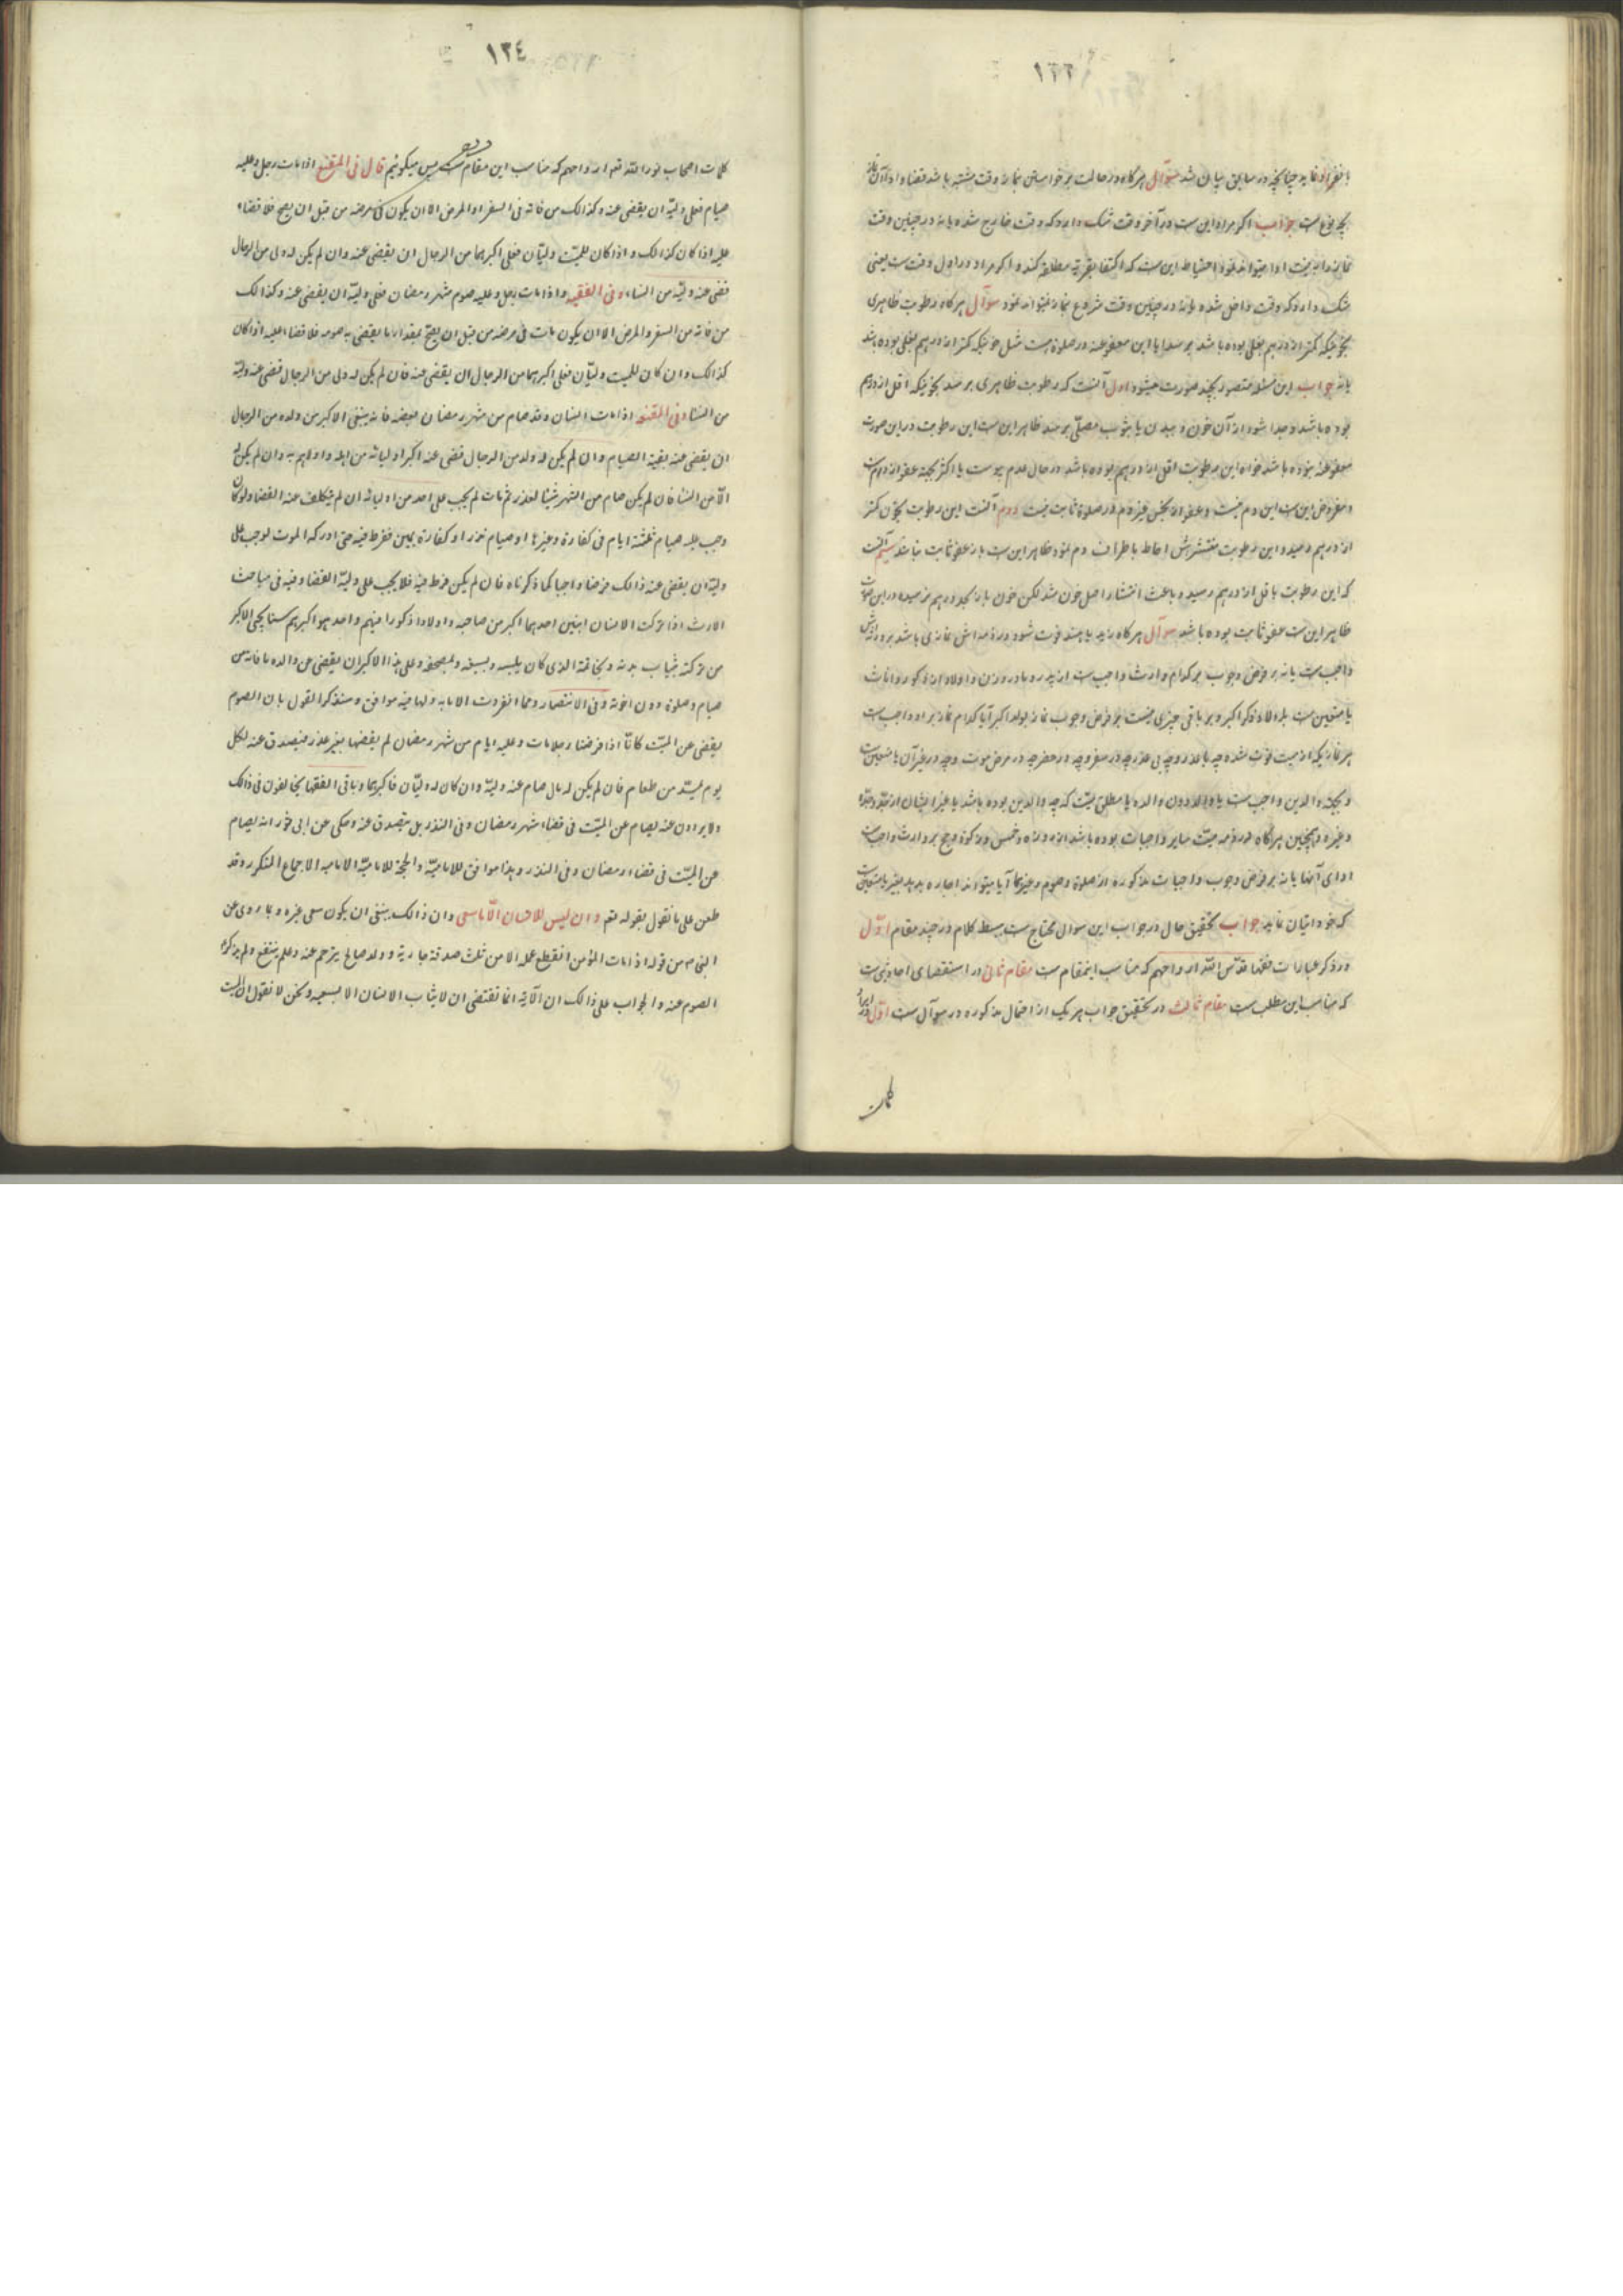 ١٢٣
بانفراد نماید چنانچه در سابق بیان شد سوال هرگاه در حالت برخواستن نماز وقت مشتبه باشد قضا و اداء آن نماز
بچه نوع ست جواب اگر مراد این ست در آخر وقت شک دارد که وقت خارج شده یا نه در چنین وقت
نماز را به نیت ادا میتواند نمود احتیاط این ست که اکتفا بقربة مطلقه کند و اگر مراد در اول وقت ست یعنی
شک دارد که وقت داخل شده یا نه در چنین وقت شروع نماز نمیتواند نمود سوال هرگاه رطوبت ظاهری
بخونیکه کمتر از درهم بغلی بوده باشد برسد ایا این معفو عنه در صلوة هست مثل خونیکه کمتر از درهم بغلی بوده باشد
یا نه جواب این مسئله متصور بچند صورت میشود اول آنست که رطوبت ظاهری برسد بخونیکه اقل از درهم
بوده باشد و جدا شود از آن خون و ببدن یا بثوب مصلّی برسد ظاهر این ست این رطوبت در این صورت
معفو عنه نبوده باشد خواه این رطوبت اقل از درهم بوده باشد در حال عدم یبوست یا اکثر بجهة عفو از دم ست
و مفروض این ست این دم نیست و عفو از نجس غیر دم در صلوة ثابت نیست دوم آنست این رطوبت بخون کمتر
از درهم رسید و این رطوبت منتشرش احاط باطراف دم نمود ظاهر این ست باز عفو ثابت نباشد سیم آنست
که این رطوبت باقل از درهم رسیده باعث انتشار اصل خون شد لکن خون باز بحد درهم نرسیده در این صورت
ظاهر این ست عفو ثابت بوده باشد سوال هرگاه زید یا هند فوت شود و در ذمه اش نمازی باشد بر ورثه اش
واجب ست یا نه بر فرض وجوب بر کدام وارث واجب ست از پدر و مادر و زن و اولاد از ذکور و اناث
یا متعین ست بر اولاد ذکر اکبر و بر باقی چیزی نیست بر فرض وجوب نماز بولد اکبر آیا کدام نماز بر او واجب ست
هر نماز یکه از میت فوت شده چه با عذر و چه بی عذر چه در سفر و چه در حضر چه در مرض موت و چه در غیر آن یا متعین ست
و بجهة والدین واجب ست یا والد دون والده یا مطلق میّت که چه والدین بوده باشد یا غیر ایشان از جدّ و جدّه
و غیره و همچنین هرگاه در ذمه میّت سایر واجبات بوده باشد از روزه و خمس و زکوة و حج بر وارث واجب ست
ادای آنها یا نه بر فرض وجوب واجبات مذکوره از صلوة و صوم و غیرهما آیا میتواند اجاره بدهد بغیر یا متعین ست
که خود اتیان نماید جواب تحقیق حال در جواب این سوال محتاج ست ببسط کلام در چند مقام اوّل
در ذکر عبارات فقهاء قدّس الله ارواحهم که مناسب اینمقام ست مقام ثانی در استقصای احادیثی ست
که مناسب این مطلب ست مقام ثالث در تحقیق جواب هر یک از احتمال مذکوره در سوال ست اوّل در ایراد
کلمات
١٢٤
کلمات اصحاب نور الله تعم ارواحهم که مناسب این مقام ست پس میگوئیم قال فی المقنع اذا مات رجل و علیه
صیام فعلی ولیّه ان یقضی عنه و کذالک من فاته فی السفر او المرض الا ان یکون فی مرضه من قبل ان یصح فلا قضاء
علیه اذا کان کذالک و اذا کان للمیّت ولیّان فعلی اکبرهما من الرجال ان یقضی عنه و ان لم یکن له ولی من الرجال
قضی عنه ولیّه من النساء و فی الفقیه و اذا مات رجل و علیه صوم شهر رمضان فعلی ولیّه ان یقضی عنه و کذالک
من فاته من السفر و المرض الا ان یکون مات فی مرضه من قبل ان یصحّ بمقدار ما یقضی به صومه فلا قضاء علیه اذا کان
کذالک و ان کان للمیت ولیّان فعلی اکبرهما من الرجال ان یقضی عنه فان لم یکن له ولی من الرجال قضی عنه ولیّه
من النساء و فی المقنعه اذا مات انسان و قد صام من شهر رمضان بعضه فانه ینبغی الاکبر من ولده من الرجال
ان یقضی عنه بقیة الصیام و ان لم یکن له ولد من الرجال قضی عنه اکبر اولیائه من اهله و اولاهم به و ان لم یکن له
الّا من النساء فان لم یکن صام من الشهر شیئا لعذر ثم مات لم یجب علی احد من اولیائه ان لم یتکلف عنه القضاء و لو کان
وجب علیه صیام ثلثة ایام فی کفارة و غیرها او صیام نذر او کفارة یمین ففرط فیه حتی ادرکه الموت لوجب علی
ولیّه ان یقضی عنه ذالک فرضا واجبا کما ذکرناه فان لم یکن فرط فیه فلا یجب علی ولیّه القضاء و فیه فی مباحث
الارث اذا ترک الانسان ابنین احدهما اکبر من صاحبه و اولادا ذکورا فیهم واحد هو اکبرهم سنا یحبی الاکبر
من ترکته بثیاب بدنه و بخاتمه الذی کان یلبسه و بسیفه و بمصحفه و علی هذا الاکبر ان یقضی عن والده ما فاته من
صیام و صلوة دون اخوته و فی الانتصار و مما انفردت الامامیه و لها فیه موافق و سنذکر القول بان الصوم
یقضی عن المیّت کانّا اذا فرضنا رجلا مات و علیه ایام من شهر رمضان لم یقضها بغیر عذر فیتصدق عنه لکل
یوم بمدّ من طعام فان لم یکن له مال صام عنه ولیّه و ان کان له ولیّان فاکبرهما و باقی الفقهاء یخالفون فی ذالک
ولا یرون عنه لصیام عن المیّت فی قضاء شهر رمضان و فی النذر بل یتصدق عنه و حکی عن ابی ثور انه یصام
عن المیّت فی قضاء رمضان و فی النذر و هذا موافق للامامیّة و الحجة للامامیّة الاجماع المتکرر و قد
طعن علی ما نقول بقوله تعم و ان لیس للانسان الّا ما سعی و ان ذالک ینفی ان یکون سعی غیره و بما روی عن
النبی ص من قوله اذا مات المؤمن انقطع عمله الا من ثلث صدقة جاریة و ولد صالح یترحم عنه و علم ینتفع و لم یذکره
الصوم عنه و الجواب علی ذالک ان الآیة انما تقتضی ان لا یثاب الانسان الا بسعیه و نحن لا نقول ان المیّت